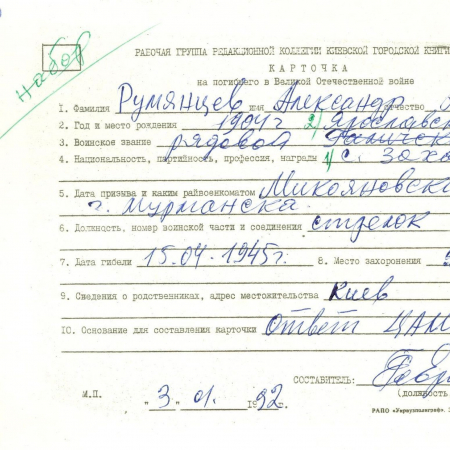 набор
РАБОЧАЯ ГРУППА РЕДАКЦИОННОЙ КОЛЛЕГИИ КИЕВСКОЙ ГОРОДСКОЙ КНИГИ
КАРТОЧКА
на погибшего в Великой Отечественной войне
1. Фамилия Румянцев имя Александр отчество
2. Год и место рождения 1904г 2/ Ярославск
3. Воинское звание рядовой
4. Национальность, партийность, профессия, награды 1/ с. Заха
5. Дата призыва и каким райвоенкоматом Микояновск
г. Мурманска.
6. Должность, номер воинской части и соединения стрелок
7. Дата гибели 15.04.1945г. 8. Место захоронения
9. Сведения о родственниках, адрес местожительства Киев
10. Основание для составления карточки Ответ ЦАМ
СОСТАВИТЕЛЬ:
(должность
М.П. "3" 01. 1992
РАПО «Укрвузполиграф».